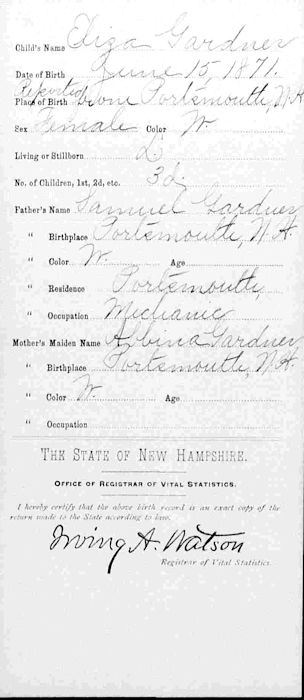 Child's Name Eliza Gardner
Date of Birth June 15, 1871.
Reported
Place of Birth Portsmouth, N.H.
Sex Female Color W.
Living or Stillborn L
No. of Children, 1st, 2d, etc. 3d.
Father's Name Samuel Gardner
" Birthplace Portsmouth, N.H.
" Color W. Age
" Residence Portsmouth
" Occupation Mechanic
Mother's Maiden Name Abbina Gardner
" Birthplace Portsmouth, N.H.
" Color W. Age
" Occupation
THE STATE OF NEW HAMPSHIRE.
OFFICE OF REGISTRAR OF VITAL STATISTICS.
I hereby certify that the above birth record is an exact copy of the
return made to the State according to law.
Irving A. Watson
Registrar of Vital Statistics.